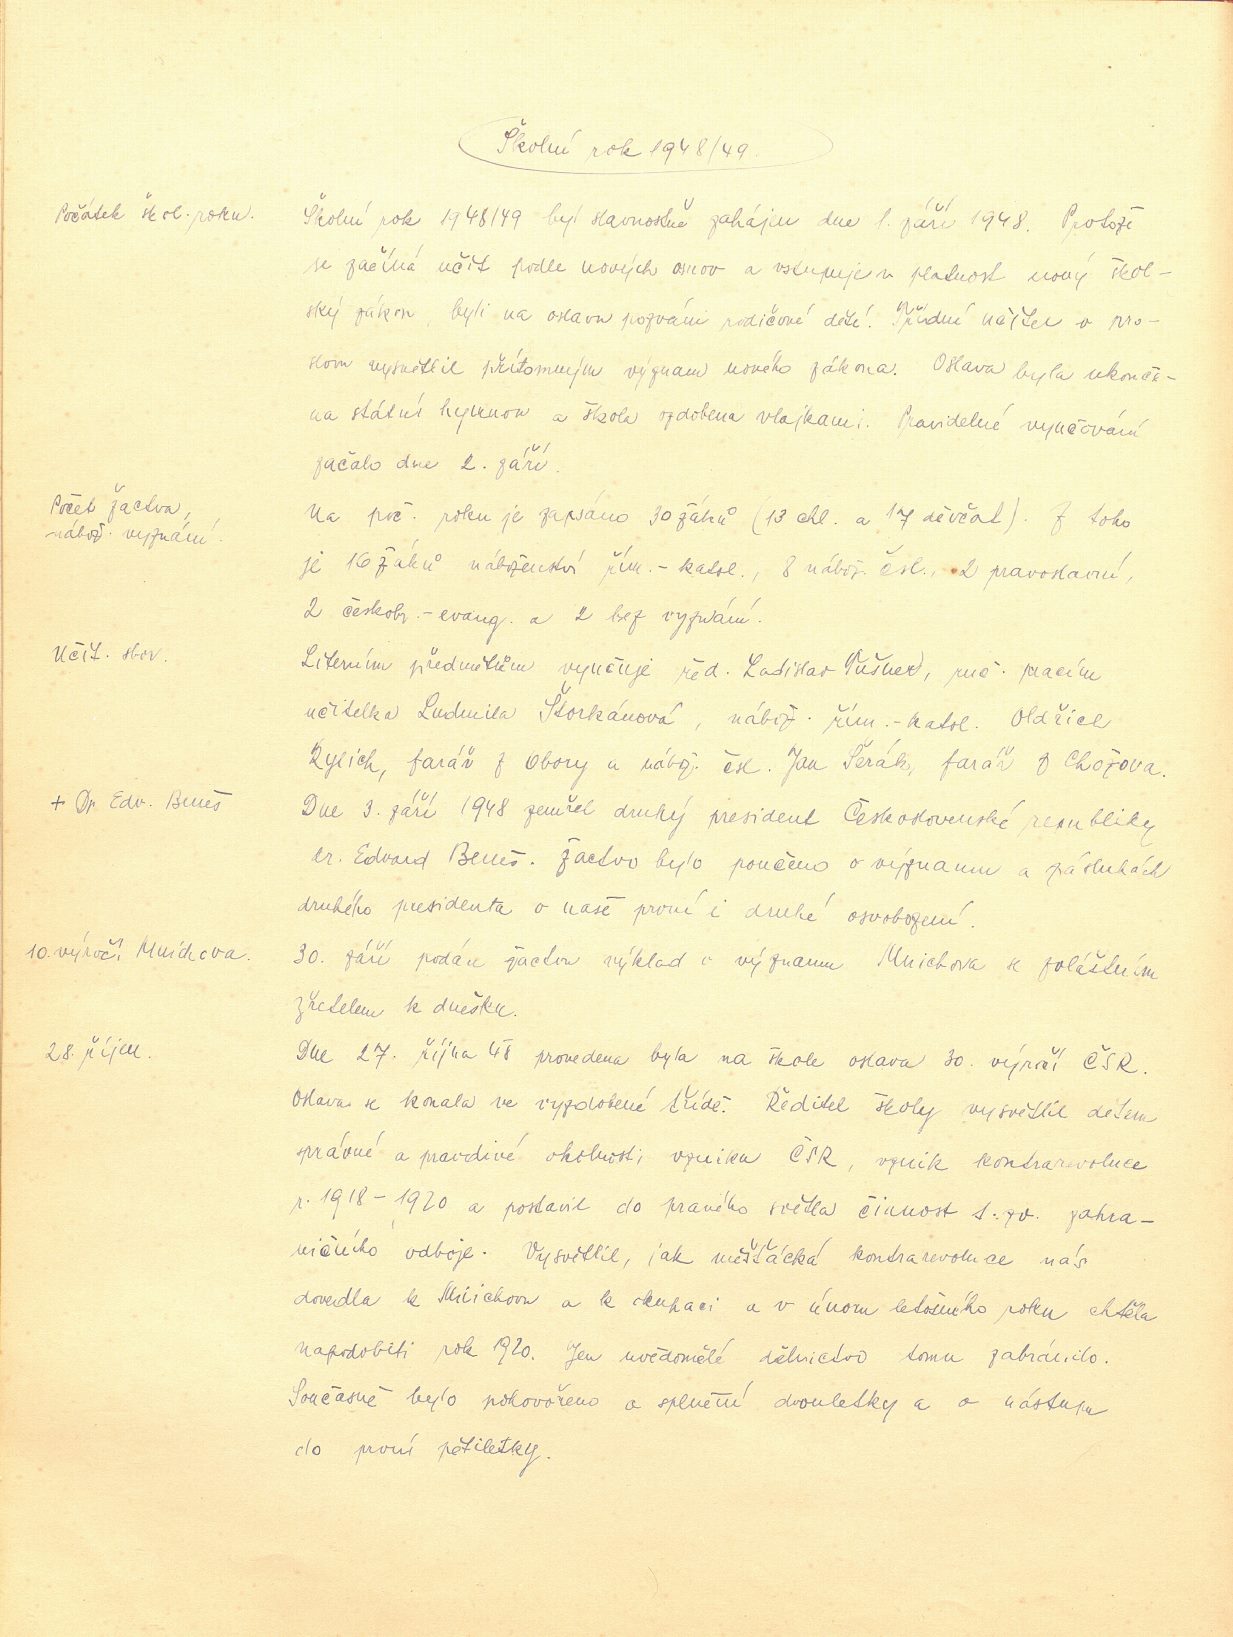 Školní rok 1948/49.
Počátek škol. roku.
Školní rok 1948/49 byl slavnostně zahájen dne 1. září 1948. Protože
se začíná učit podle nových osnov a vstupuje v platnost nový škol-
ský zákon, byli na oslavu pozváni rodičové dětí. Řídící učitel v pro-
slovu vysvětlil přítomným význam nového zákona. Oslava byla ukonče-
na státní hymnou a škola ozdobena vlajkami. Pravidelné vyučování
začalo dne 2. září.
Počet žactva,
nábož. vyznání.
Na poč. roku je zapsáno 30 žáků (13 chl. a 17 děvčat). Z toho
je 16 žáků náboženství řím.-katol., 8 nábož. čsl., 2 pravoslavní,
2 českobr.-evang. a 2 bez vyznání.
Učit. sbor.
Literním předmětům vyučuje řed. Ladislav, ruč. pracím
učitelka Ludmila Štorkánová, nábož. řím.-katol. Oldřich
Rylich, farář z Obory a nábož. čsl. Jan Šerák, farář z Chožova.
+ Dr Edv. Beneš
Dne 3. září 1948 zemřel druhý president Československé republiky
dr. Edvard Beneš. Žactvo bylo poučeno o významu a zásluhách
druhého presidenta o naše první i druhé osvobození.
10. výročí Mnichova.
30. září podán žactvu výklad o významu Mnichova se zvláštním
zřetelem k dnešku.
28. říjen.
Dne 27. října 48 provedena byla na škole oslava 30. výročí ČSR.
Oslava se konala ve vyzdobené třídě. Ředitel školy vysvětlil dětem
správné a pravdivé okolnosti vzniku ČSR, vznik kontrarevoluce
r. 1918-1920 a postavil do pravého světla činnost t. zv. zahra-
ničního odboje. Vysvětlil, jak měšťácká kontrarevoluce nás
dovedla k Mnichovu a k okupaci a v únoru letošního roku chtěla
napodobiti rok 1920. Jen uvědomělé dělnictvo tomu zabránilo.
Současně bylo pohovořeno o splnění dvouletky a o nástupu
do první pětiletky.